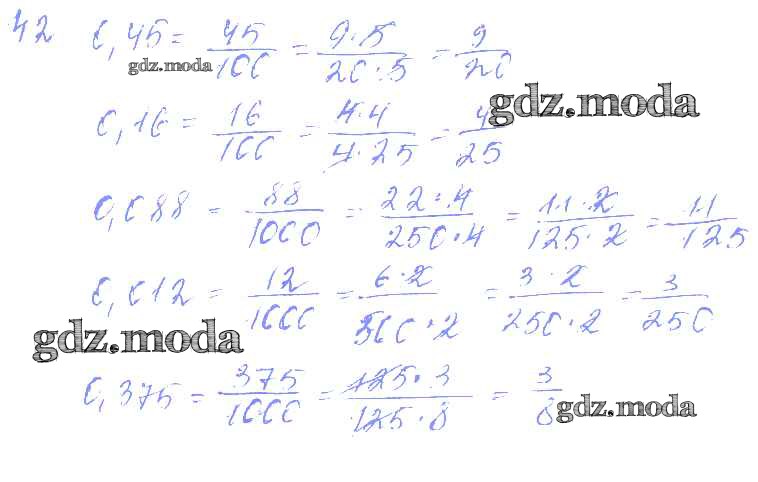 42 0,45 = 45/100 = 9·5/20·5 = 9/20
gdz.moda
gdz.moda
0,16 = 16/100 = 4·4/4·25 = 4/25
0,088 = 88/1000 = 22·4/250·4 = 11·2/125·2 = 11/125
0,012 = 12/1000 = 6·2/500·2 = 3·2/250·2 = 3/250
gdz.moda
0,375 = 375/1000 = 125·3/125·8 = 3/8
gdz.moda